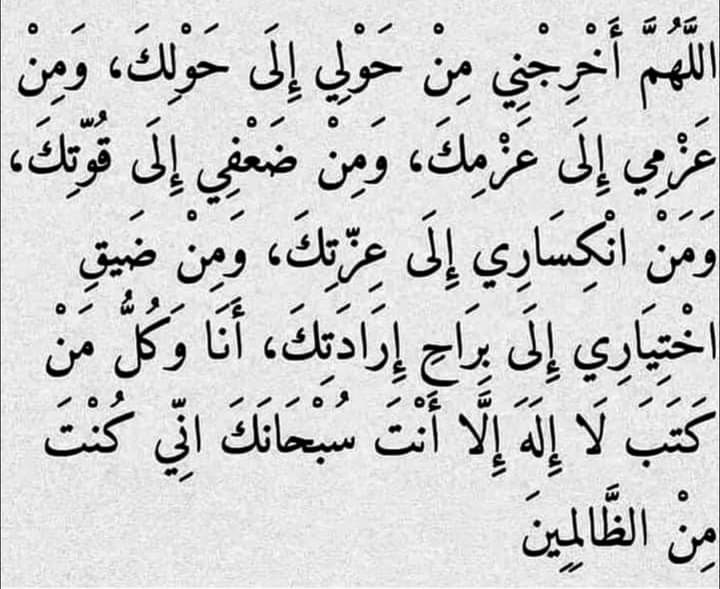 اللَّهُمَّ أَخْرِجْنِي مِنْ حَوْلِي إِلَى حَوْلِكَ، وَمِنْ
عَزْمِي إِلَى عَزْمِكَ، وَمِنْ ضَعْفِي إِلَى قُوَّتِكَ،
وَمَنْ انْكِسَارِي إِلَى عِزَّتِكَ، وَمِنْ ضَيقِ
اخْتِيَارِي إِلَى بِرَاحِ إِرَادَتِكَ، أَنَا وَكُلُّ مَنْ
كَتَبَ لَا إِلَهَ إِلَّا أَنْتَ سُبْحَانَكَ انِّي كُنْتَ
مِنْ الظَّالِمِينَ